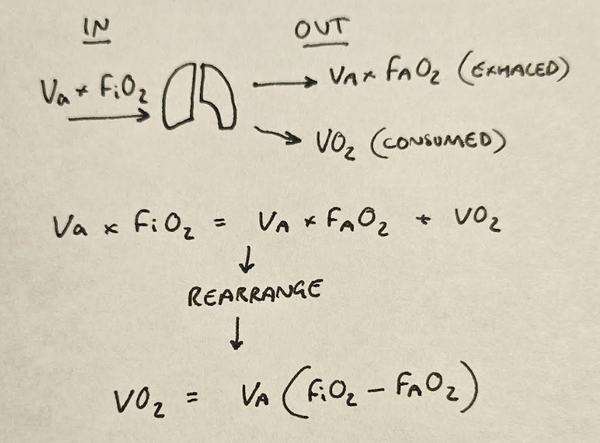 IN
OUT
Va × FiO₂
VA × FAO₂ (EXHALED)
VO₂ (CONSUMED)
Va × FiO₂ = VA × FAO₂ + VO₂
↓
REARRANGE
↓
VO₂ = VA (FiO₂ − FAO₂)